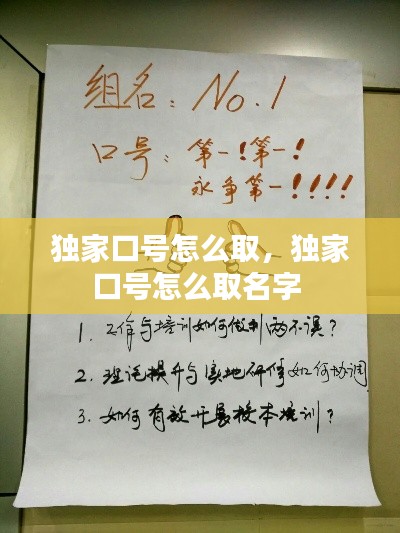 组名：No.1
口号：第一！第一！
永争第一！！！！
独家口号怎么取，独家
口号怎么取名字
1. 工作与培训如何做到两不误？
2. 理论提升与实地研修如何协调
3. 如何有效开展校本培训？